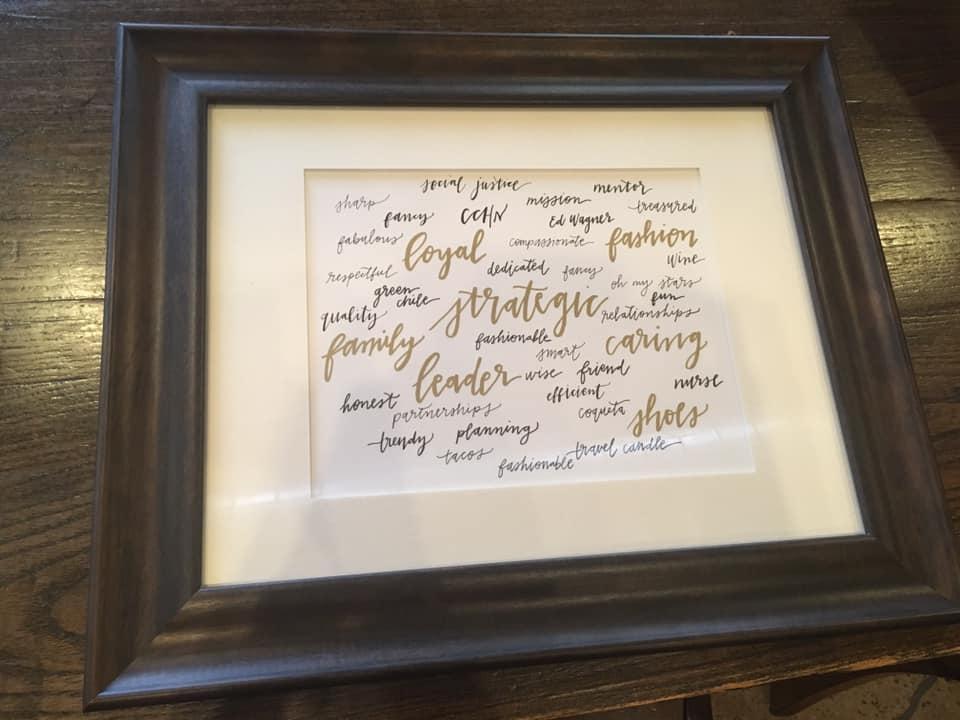 social justice
mentor
sharp
mission
treasured
fancy
CCHN
Ed Wagner
fabulous
loyal
compassionate
fashion
wine
respectful
dedicated
fancy
oh my stars
green
chile
strategic
fun
quality
relationships
family
fashionable
caring
smart
leader
wise
friend
nurse
honest
efficient
partnerships
coqueta
shoes
trendy
planning
tacos
fashionable
travel candle